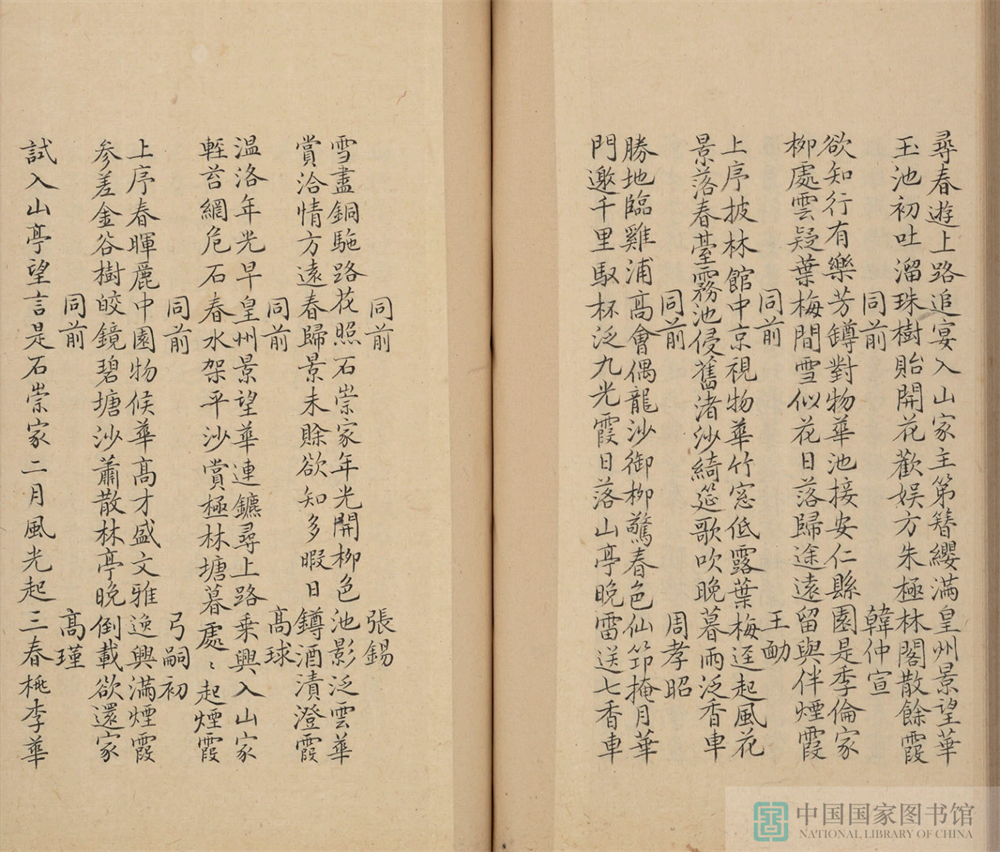 尋春遊上路追宴入山家主第簪纓滿皇州景望華
玉池初吐溜珠樹貽開花歡娛方朱極林閣散餘霞
同前 韓仲宣
欲知行有樂芳罇對物華池接安仁縣園是季倫家
柳處雲疑葉梅間雪似花日落歸途遠留與伴煙霞
同前 王勔
上序披林館中京視物華竹窓低露葉梅逕起風花
景落春臺霧池侵舊渚紗綺筵歌吹晚暮雨泛香車
同前 周孝昭
勝地臨雞浦高會偶龍沙御柳驚春色仙筇掩月華
門邀千里馭杯泛九光霞日落山亭晚雷送七香車
同前 張錫
雪盡銅駞路花照石崇家年光開柳色池影泛雲華
賞洽情方遠春歸景未賒欲知多暇日罇酒漬澄霞
同前 高球
温洛年光早皇州景望華連鑣尋上路乗興入山家
輊苔網危石春水架平沙賞極林塘暮處〻起煙霞
同前 弓嗣初
上序春暉麗中園物候華高才盛文雅逸興滿煙霞
参差金谷樹皎鏡碧塘沙蕭散林亭晚倒載欲還家
同前 高瑾
試入山亭望言是石崇家二月風光起三春桃李華
中国国家图书馆
NATIONAL LIBRARY OF CHINA